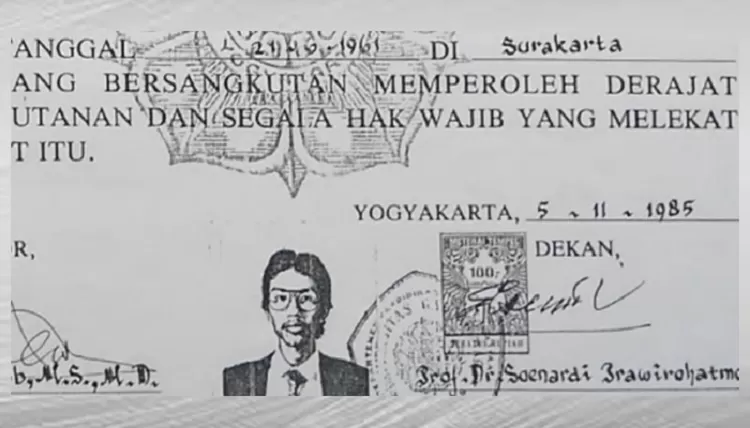 ANGGAL 21-6-1961 DI Surakarta
ANG BERSANGKUTAN MEMPEROLEH DERAJAT
UTANAN DAN SEGALA HAK WAJIB YANG MELEKAT
T ITU.
YOGYAKARTA, 5 - 11 - 1985
R, DEKAN,
100,-
b, M.S., M.D. Prof. Dr. Soenardi Prawirohatmo